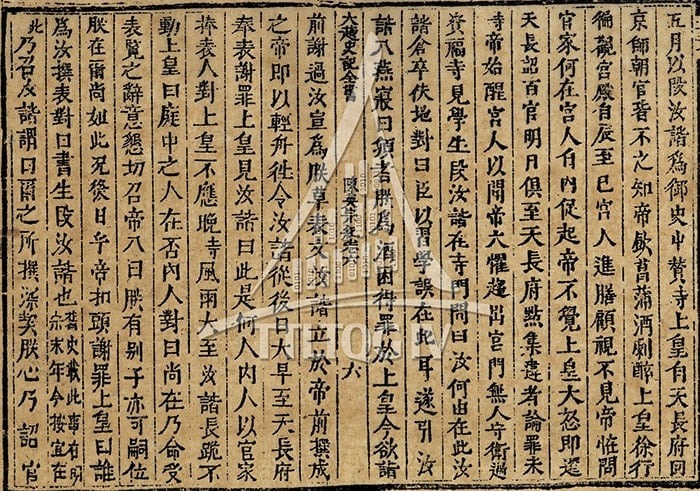 五月以段汝諧爲御史中贊寺上皇自天長府回
京師朝官皆不之知帝飲菖蒲酒劇醉上皇徐行
徧觀宮殿自辰至巳宮人進膳顧視不見帝恠問
官家何在宮人自内促起帝不覺上皇大怒即還
天長詔百官明日俱至天長府點集違者論罪未
寺帝始醒宮人以聞帝大懼趨出宮門無人守衛過
資福寺見學生段汝諧在寺門問曰汝何由在此汝
諧倉卒伏地對曰臣以習學誤在此耳遂引汝
諧入燕寢曰頃者朕爲酒困得罪於上皇今欲詣
大越史記全書 陳英宗紀卷六 六
前謝過汝宜爲朕草表文汝諧立於帝前撰成
之帝即以輕舟徃令汝諧從後日大早至天長府
奉表謝罪上皇見汝諧曰此是何人内人以官家
捧表人對上皇不應晚寺風雨大至汝諧長跪不
動上皇曰庭中之人在否内人對曰尚在乃命受
表覽之辭意懇切召帝入曰朕有别子亦可嗣位
朕在爾尚如此况後日乎帝扣頭謝罪上皇曰誰
爲汝撰表對曰書生段汝諧也 舊史載此事右明宗末年今按宜在
此乃召汝諧謂曰爾之所撰深契朕心乃詔官
TTLTQGIV